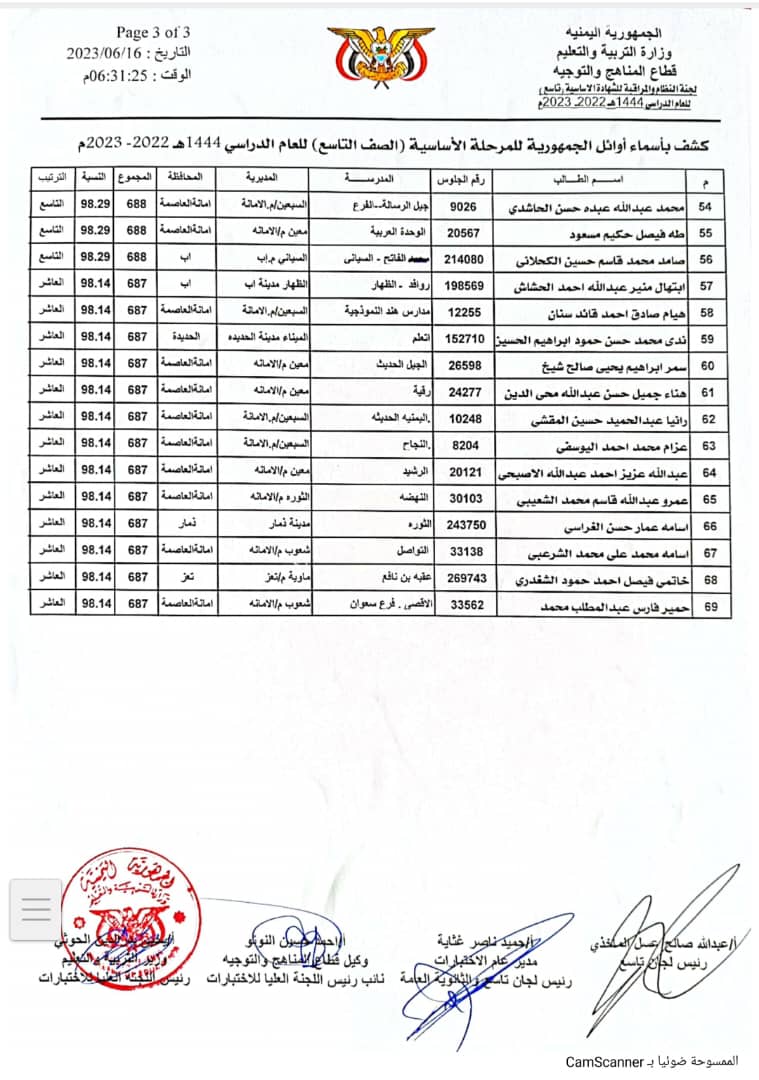 الجمهورية اليمنيه
وزارة التربية والتعليم
قطاع المناهج والتوجيه
لجنة النظام والمراقبة للشهادة الاساسية (تاسع)
للعام الدراسي 1444هـ 2022ـ 2023م
Page 3 of 3
التاريخ : 2023/06/16
الوقت : 06:31:25م
كشف بأسماء أوائل الجمهورية للمرحلة الأساسية (الصف التاسع) للعام الدراسي 1444هـ 2022- 2023م
م اسـم الطـالب رقم الجلوس المدرسـة المديرية المحافظة المجموع النسبة الترتيب
54 محمد عبدالله عبده حسن الحاشدي 9026 جيل الرسالة--الفرع السبعين/م.الامانة امانةالعاصمة 688 98.29 التاسع
55 طه فيصل حكيم مسعود 20567 الوحدة العربية معين م/الامانه امانةالعاصمة 688 98.29 التاسع
56 صامد محمد قاسم حسين الكحلاني 214080 الفاتح - السياني السياني م.إب اب 688 98.29 التاسع
57 ابتهال منير عبدالله احمد الحشاش 198569 روافد - الظهار الظهار مدينة اب اب 687 98.14 العاشر
58 هيام صادق احمد قائد سنان 12255 مدارس هند النموذجية السبعين/م.الامانة امانةالعاصمة 687 98.14 العاشر
59 ندى محمد حسن حمود ابراهيم الحسين 152710 اتعلم الميناء مدينة الحديده الحديدة 687 98.14 العاشر
60 سمر ابراهيم يحيى صالح شيخ 26598 الجيل الحديث معين م/الامانه امانةالعاصمة 687 98.14 العاشر
61 هناء جميل حسن عبدالله محي الدين 24277 رقية معين م/الامانه امانةالعاصمة 687 98.14 العاشر
62 رانيا عبدالحميد حسين المقشي 10248 .اليمنيه الحديثه السبعين/م.الامانة امانةالعاصمة 687 98.14 العاشر
63 عزام محمد احمد اليوسفي 8204 .النجاح السبعين/م.الامانة امانةالعاصمة 687 98.14 العاشر
64 عبدالله عزيز احمد عبدالله الاصبحي 20121 الرشيد معين م/الامانه امانةالعاصمة 687 98.14 العاشر
65 عمرو عبدالله قاسم محمد الشعيبي 30103 النهضه الثوره م/الامانه امانةالعاصمة 687 98.14 العاشر
66 اسامه عمار حسن الغراسي 243750 الثوره مدينة ذمار ذمار 687 98.14 العاشر
67 اسامه محمد علي محمد الشرعبي 33138 التواصل شعوب م/الامانه امانةالعاصمة 687 98.14 العاشر
68 خاتمي فيصل احمد حمود الشغدري 269743 عقبه بن نافع ماوية م/تعز تعز 687 98.14 العاشر
69 حمير فارس عبدالمطلب محمد 33562 الاقصى . فرع سعوان شعوب م/الامانه امانةالعاصمة 687 98.14 العاشر
أ/عبدالله صالح
رئيس لجان تاسع
أ/حميد ناصر غثاية
مدير عام الاختبارات
رئيس لجان تاسع والثانوية العامة
أ/احمد حسين النونو
وكيل قطاع المناهج والتوجيه
نائب رئيس اللجنة العليا للاختبارات
الدين الحوثي
وزير التربية والتعليم
رئيس اللجنة العليا للاختبارات
الجمهورية اليمنية
وزارة التربية والتعليم
الممسوحة ضوئيا بـ CamScanner